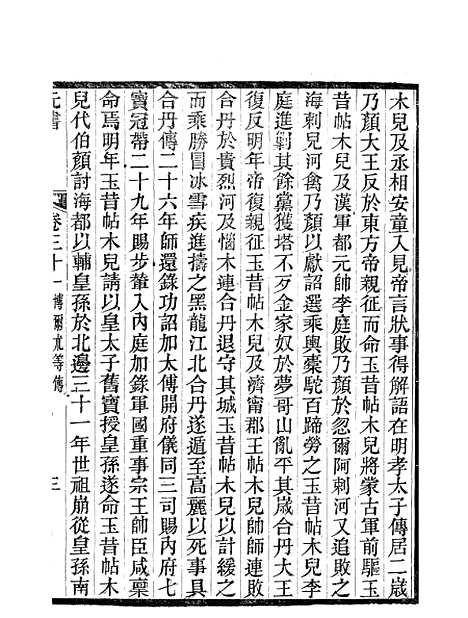 木兒及丞相安童入見帝言狀事得解語在明孝太子傳居二歲
乃顏大王反於東方帝親征而命玉昔帖木兒將蒙古軍前驅玉
昔帖木兒及漢軍都元帥李庭敗乃顏於忽爾阿剌河又追敗之
海剌兒河禽乃顏以獻詔選乘輿橐駝百蹄勞之玉昔帖木兒李
庭進剿其餘黨獲塔不歹金家奴於夢哥山亂平其歲合丹大王
復反明年帝復親征玉昔帖木兒及濟甯郡王帖木兒帥師連敗
合丹於貴烈河及惱木連合丹退守其城玉昔帖木兒以計緩之
而乘勝冒冰雪疾進擣之黑龍江北合丹遂遁至高麗以死事具
合丹傳二十六年師還錄功詔加太傅開府儀同三司賜內府七
寶冠帶二十九年賜步輦入內庭加錄軍國重事宗王帥臣咸稟
命焉明年玉昔帖木兒請以皇太子舊寶授皇孫遂命玉昔帖木
兒代伯顏討海都以輔皇孫於北邊三十一年世祖崩從皇孫南
元書 卷三十一博爾朮等傳 三